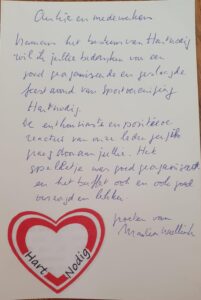 Namens het bestuur van Hartnodig
wil ik jullie bedanken van een
goed georganiseerde en geslaagde
feestavond van sportvereniging
Hartnodig
De enthousiaste en positieve
reacties van onze leden
graag door aan jullie. Het
was goed georganiseerd
en het buffet ook en ook goed
verzorgd en lekker.
groeten van
Hart
Nodig